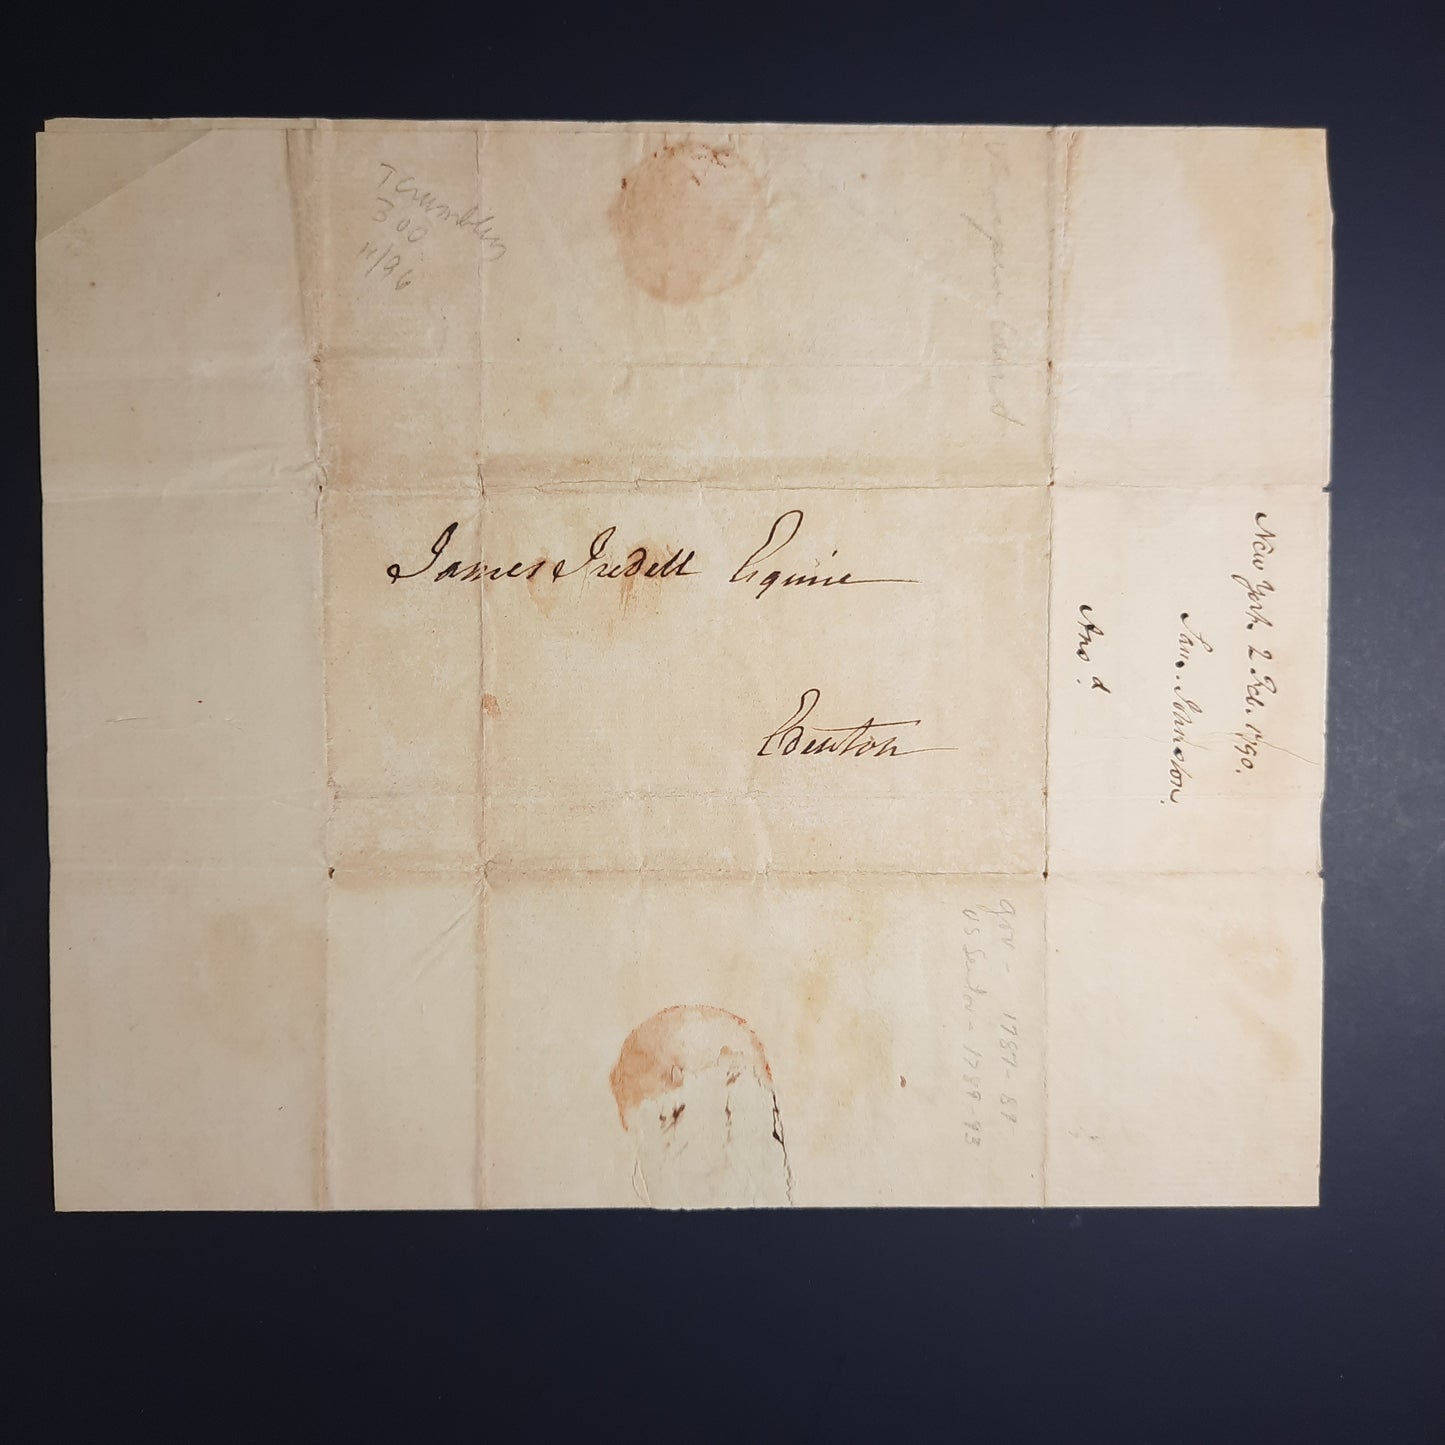 James Iredell Esquire
Edenton
New York 2 Feb. 1790.
Sam. Johnston.
Ans.d
300
11/96
gov - 1787-89-
US Senator - 1789-93